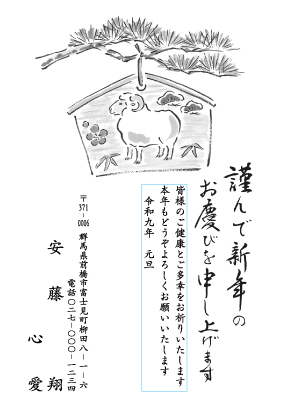 謹んで新年の
お慶びを申し上げます
皆様のご健康とご多幸をお祈りいたします
本年もどうぞよろしくお願いいたします
令和九年　元旦
〒371-0106 群馬県前橋市富士見町柳田八-一-六
電話〇二七-〇〇〇-一二三四
安藤　翔
心愛